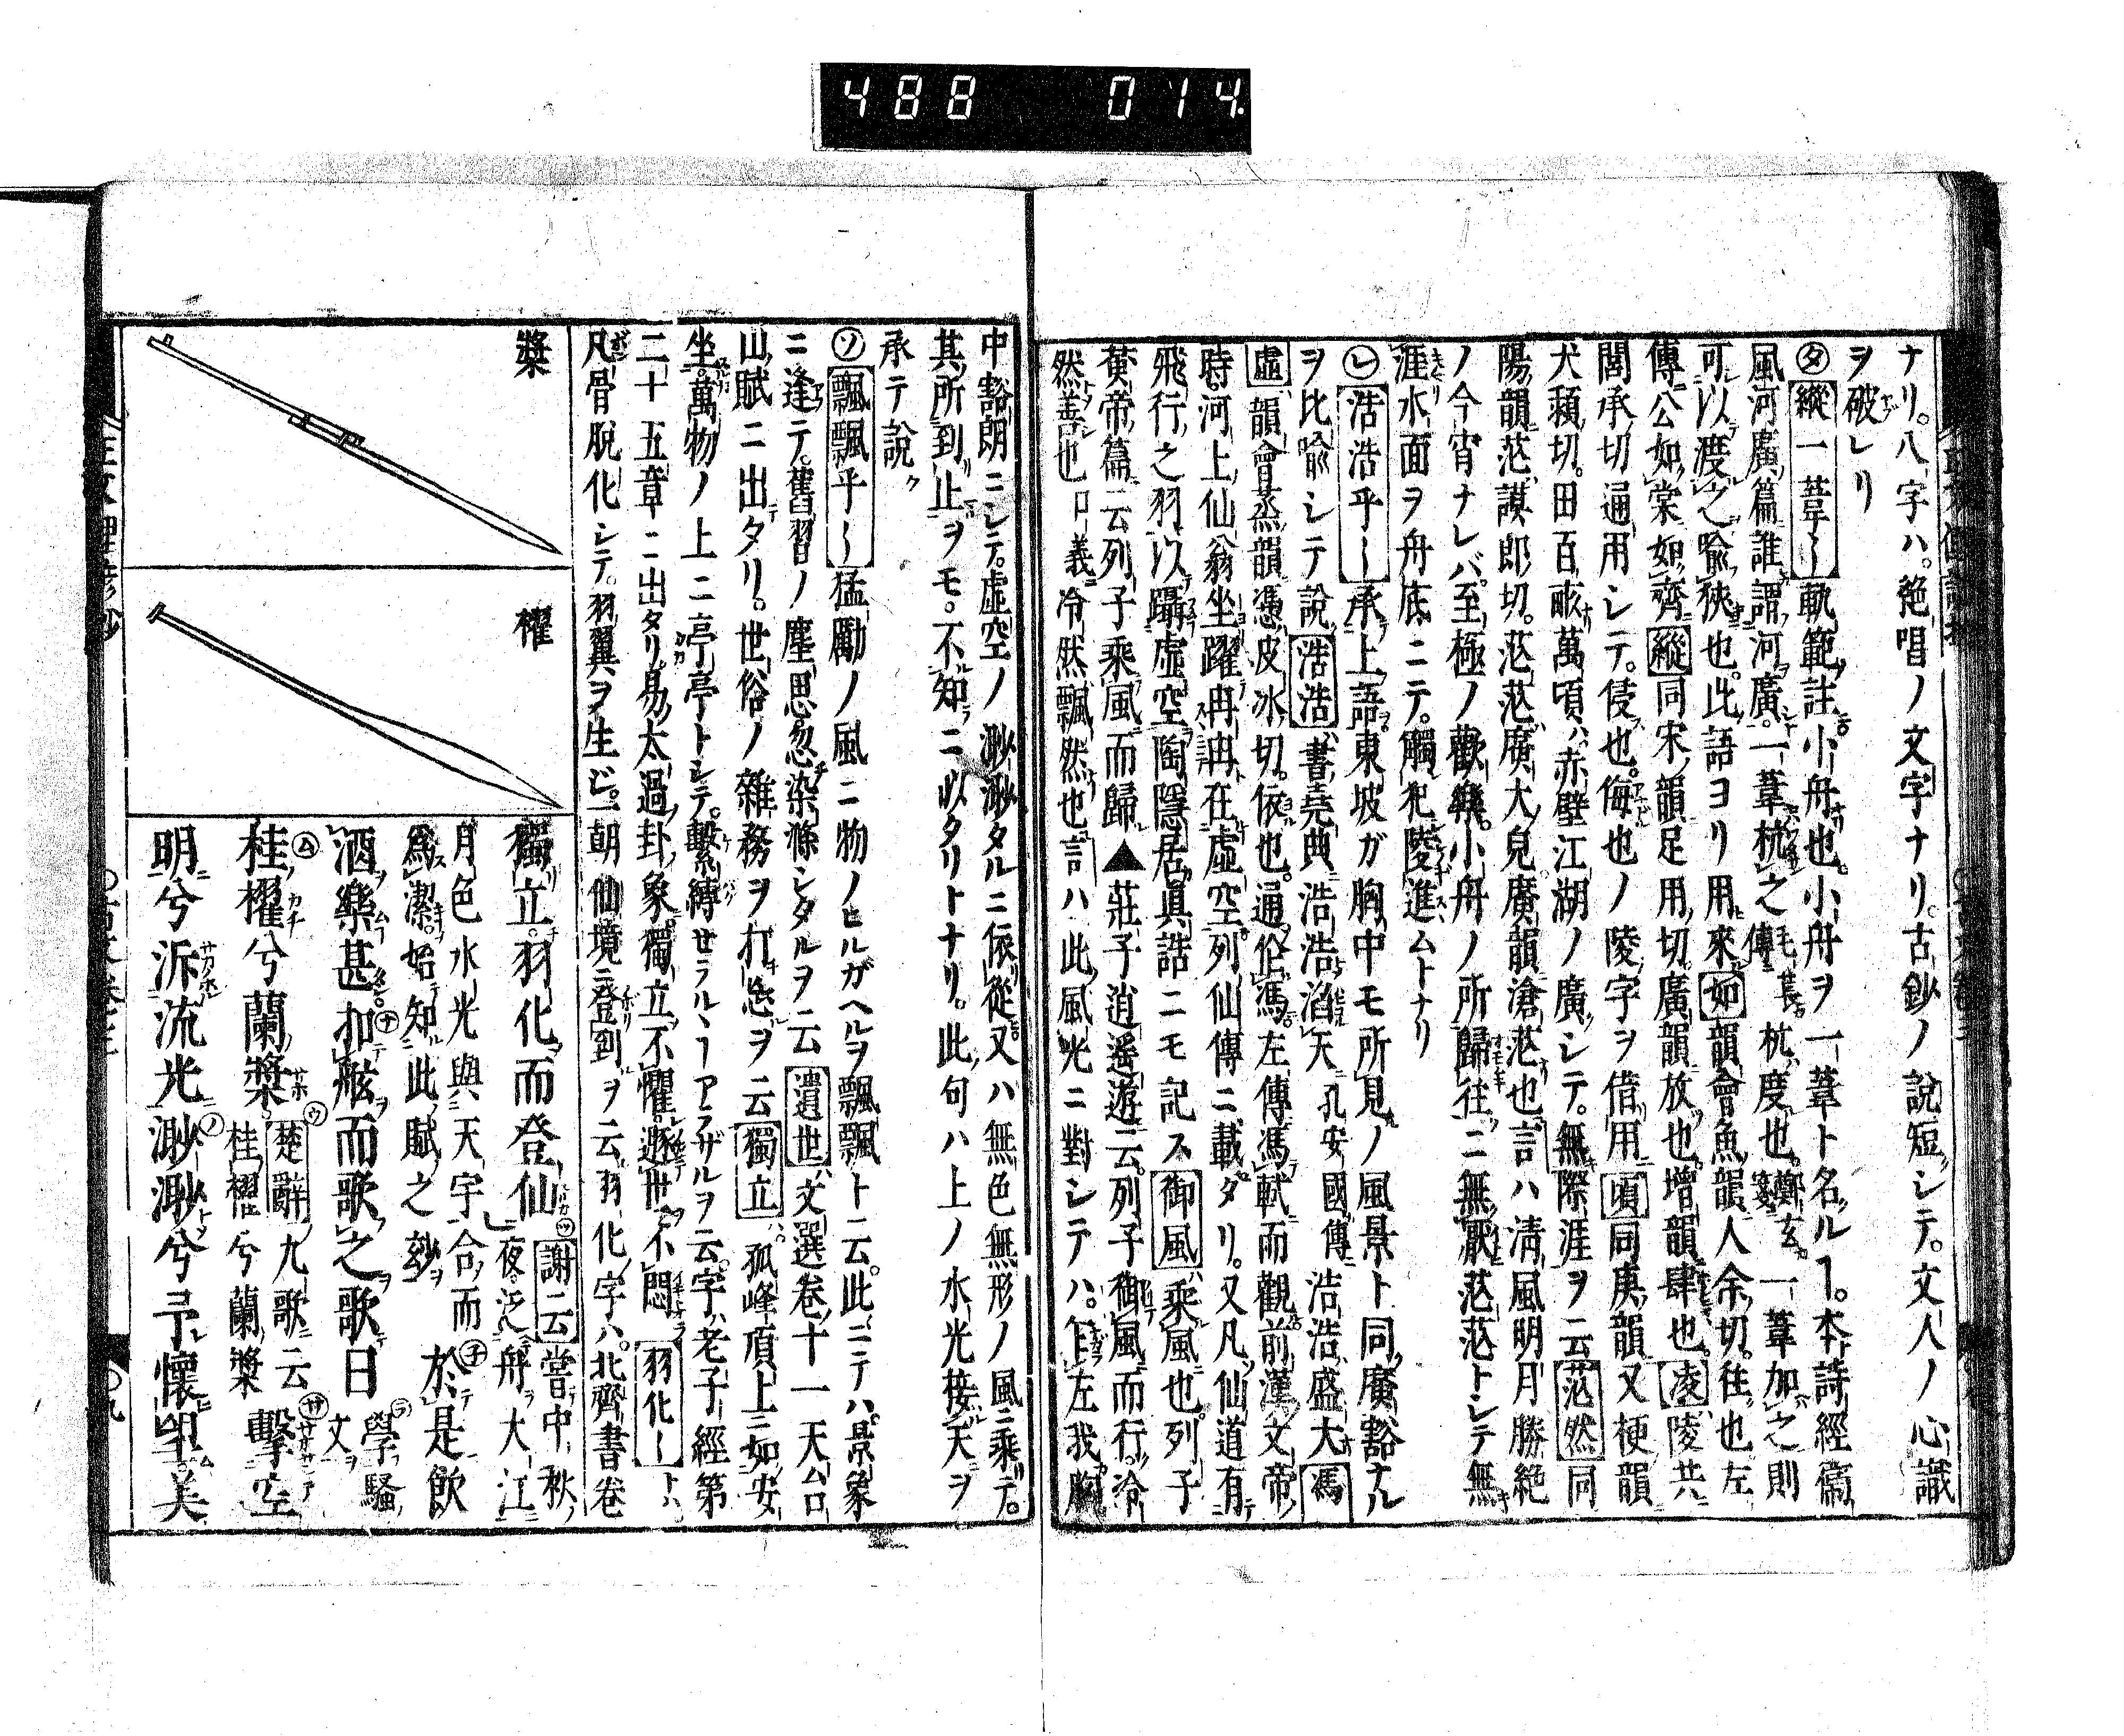 488 014.
ナリ。八字ハ。絶唱ノ文字ナリ。古鈔ノ說短シテ。文人ノ心識
ヲ破レリ
㋟縱一葦〻軌範註小舟也。小舟ヲ一葦ト名ルヿ。本詩經衞
風河廣篇誰謂河廣。一葦杭之傳毛萇。杭度也。箋鄭玄。一葦加之則
可以渡之喩狹也。此語ヨリ用來如韻會魚韻人余切。往也左
傳公如棠如齊縱同宋韻足用切。廣韻放也。增韻肆也。凌陵共
閭承切通用シテ。侵也。侮也ノ陵字ヲ借用頃同庚韻又梗韻
犬潁切。田百畝萬頃ハ赤壁江湖ノ廣シテ。無際涯ヲ云茫然同
陽韻茫謨郎切。茫茫廣大皃廣韻滄茫也言ハ淸風明月勝絶
ノ今宵ナレバ。至極ノ歡樂。小舟ノ所歸往ニ無厭茫茫トシテ無
涯水面ヲ舟底ニテ。觸犯陵進ムトナリ
㋹浩浩乎〻承上語東坡ガ胸中モ所見ノ風景ト同廣豁ナル
ヲ比喩シテ說浩浩書堯典浩浩滔天孔安國傳浩浩盛大馮
虛韻會蒸韻憑皮冰切。依也。通作馮左傳馮軾而觀前漢文帝
時河上仙翁坐躍冉冉在虛空。列仙傳ニ載タリ。又凡仙道有
飛行之羽以躡虛空陶隱居眞誥ニモ記ス御風乘風也。列子
黃帝篇云列子乘風而歸▲莊子逍遙遊云。列子御風而行。冷
然善也口義冷然飄然也言ハ此風光ニ對シテハ。乍左我胸
中豁朗ニシテ。虛空ノ渺渺タルニ依從。又ハ無色無形ノ風ニ乘デ。
其所到止ヲモ。不知ニ似タリトナリ。此句ハ上ノ水光接天ヲ
承テ說ク
㋞飄飄乎〻猛勵ノ風ニ物ノヒルガヘルヲ飄飄ト云。此ニテハ。景象
ニ逢テ。舊習ノ塵思忽染滌シタルヲ云遺世文選卷十一天台
山賦ニ出タリ。世俗ノ雜務ヲ打忘ヲ云獨立ハ。孤峰頂上ニ如安
坐。萬物ノ上ニ亭亭トシテ。繫縛セラルヽヿアラザルヲ云。字ハ老子經第
二十五章ニ出タリ。易太過卦象獨立不懼。遯世不悶羽化〻トハ
凡骨脫化シテ。羽翼ヲ生ジ。一朝仙境ニ登到ヲ云羽化字ハ。北齊書卷
槳
櫂
獨立羽化而登仙㋡謝云當中秋
夜泛舟大江
月色水光與天宇合而
爲潔始知此賦之妙㋧於是飮
酒樂甚㋤扣舷而歌之歌曰㋶學騷文
㋰桂櫂兮蘭槳㋒楚辭九歌云桂櫂兮蘭槳㋚擊空
明兮泝流光㋨渺渺兮予懷望美